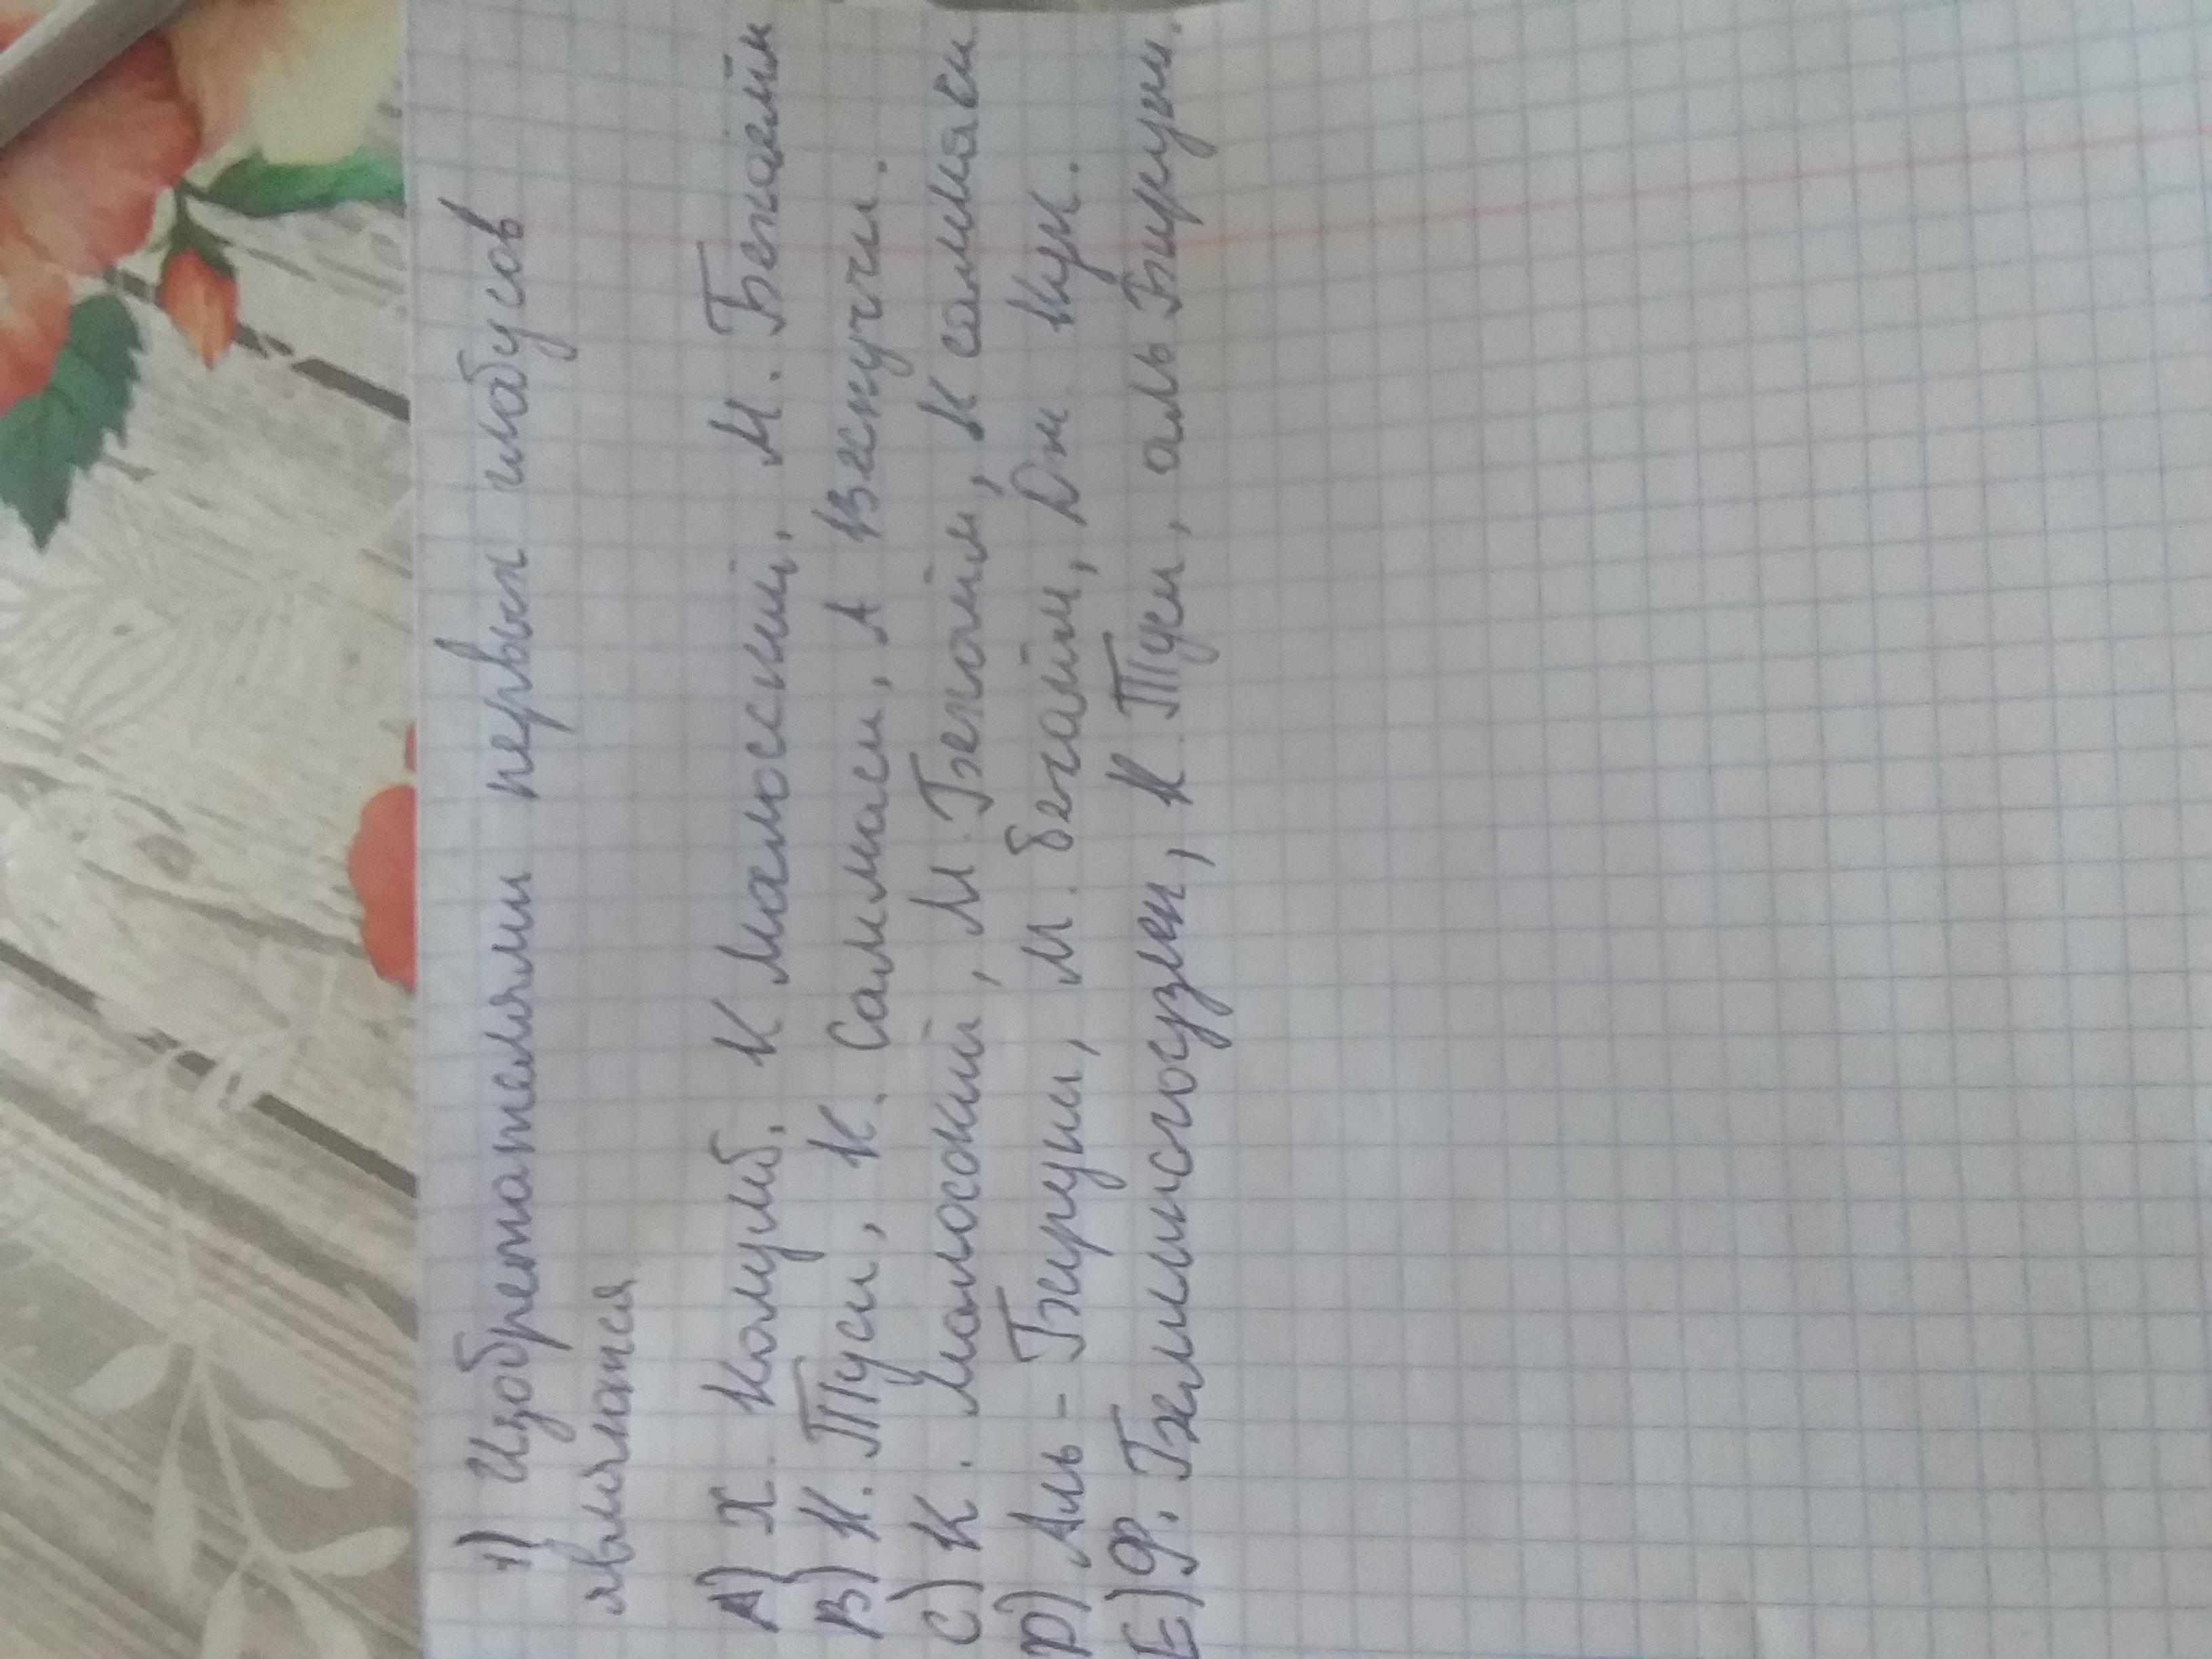 1) Изобретателями первых глобусов
являются
A) Х. Колумб, К Малосский, М. Бехайм
B) К. Туси, К. Саллмаси, А Веспуччи.
C) К. Малосский, М. Бехайм, К саллмаси
D) Аль-Бируни, М. бегайм, Дж Кук.
E) Ф. Беллинсгаузен, К. Туси, аль Бируни.